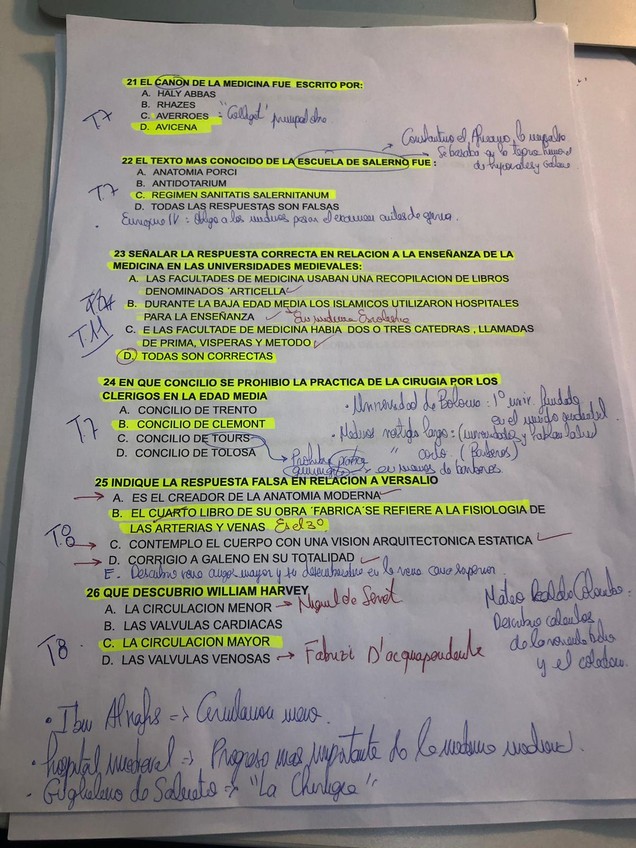 21 EL CANON DE LA MEDICINA FUE ESCRITO POR:
A. HALY ABBAS
B. RHAZES
C. AVERROES : "Colliget" principal obra
T.7
D. AVICENA
Constantino el Africano
se basaba en la
22 EL TEXTO MAS CONOCIDO DE LA ESCUELA DE SALERNO FUE :
A. ANATOMIA PORCI
T.7
B. ANTIDOTARIUM
C. REGIMEN SANITATIS SALERNITANUM
D. TODAS LAS RESPUESTAS SON FALSAS
a los medicos pasar el examen antes de
23 SEÑALAR LA RESPUESTA CORRECTA EN RELACION A LA ENSEÑANZA DE LA
MEDICINA EN LAS UNIVERSIDADES MEDIEVALES:
A. LAS FACULTADES DE MEDICINA USABAN UNA RECOPILACION DE LIBROS
DENOMINADOS ´ARTICELLA´
B. DURANTE LA BAJA EDAD MEDIA LOS ISLAMICOS UTILIZARON HOSPITALES
PARA LA ENSEÑANZA
T.11
C. E LAS FACULTADE DE MEDICINA HABIA DOS O TRES CATEDRAS , LLAMADAS
DE PRIMA, VISPERAS Y METODO
D. TODAS SON CORRECTAS
24 EN QUE CONCILIO SE PROHIBIO LA PRACTICA DE LA CIRUGIA POR LOS
CLERIGOS EN LA EDAD MEDIA
A. CONCILIO DE TRENTO
• Universidad de Bolonia : 1º univ. fundada
en el mundo
T.7
B. CONCILIO DE CLEMONT
• Medicos vestidos largo : (universidades y hablan latin)
C. CONCILIO DE TOURS
" corto. (Barberos)
D. CONCILIO DE TOLOSA
en manos de barberos.
25 INDIQUE LA RESPUESTA FALSA EN RELACION A VERSALIO
A. ES EL CREADOR DE LA ANATOMIA MODERNA
B. EL CUARTO LIBRO DE SU OBRA ´FABRICA´SE REFIERE A LA FISIOLOGIA DE
LAS ARTERIAS Y VENAS Es el 3º
T.8
C. CONTEMPLO EL CUERPO CON UNA VISION ARQUITECTONICA ESTATICA
D. CORRIGIO A GALENO EN SU TOTALIDAD
E. Descubrio vena acigos mayor y su desembocadura en la vena cava superior.
26 QUE DESCUBRIO WILLIAM HARVEY
A. LA CIRCULACION MENOR → Miguel de Servet
Mateo Realdo Colombo.
B. LAS VALVULAS CARDIACAS
Descubrio
T8
C. LA CIRCULACION MAYOR
D. LAS VALVULAS VENOSAS → Fabrizi D'acquapendente
y el
• Ibn Alnafis => Circulacion menor.
• hospital medieval => Progreso mas importante de la medicina medieval.
• Guglielmo de Saliceto => "La Chirurgia"